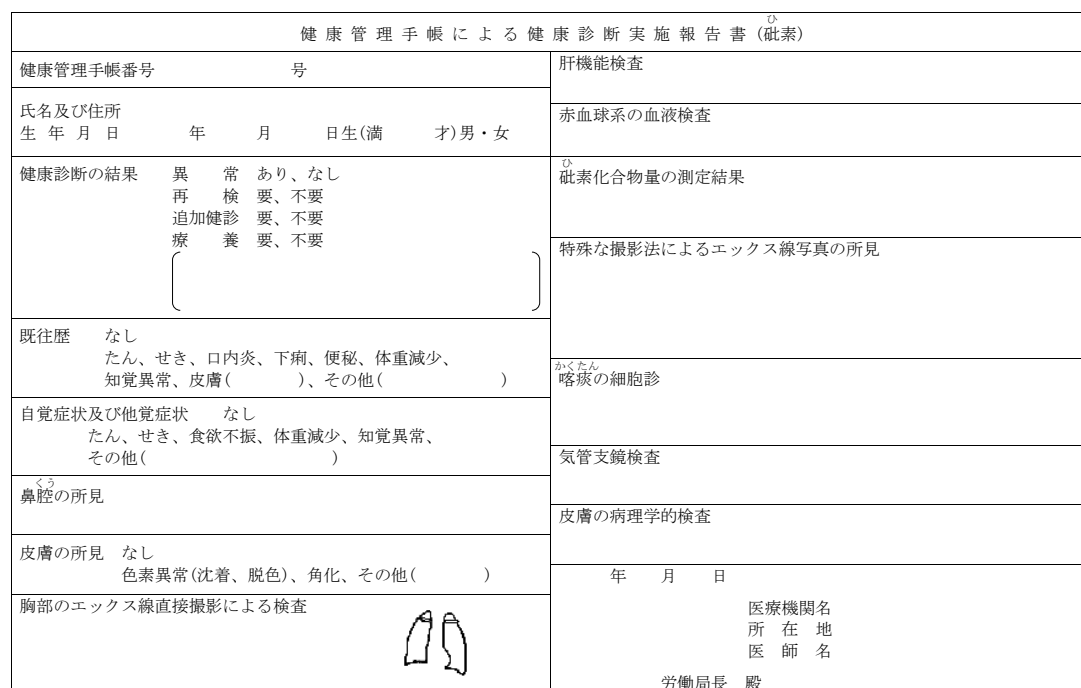 健康管理手帳による健康診断実施報告書(砒素)
健康管理手帳番号 号
氏名及び住所
生年月日 年 月 日生(満 才)男・女
健康診断の結果 異常 あり、なし
再検 要、不要
追加健診 要、不要
療養 要、不要
既往歴 なし
たん、せき、口内炎、下痢、便秘、体重減少、
知覚異常、皮膚( )、その他( )
自覚症状及び他覚症状 なし
たん、せき、食欲不振、体重減少、知覚異常、
その他( )
鼻腔の所見
皮膚の所見 なし
色素異常(沈着、脱色)、角化、その他( )
胸部のエックス線直接撮影による検査
肝機能検査
赤血球系の血液検査
砒素化合物量の測定結果
特殊な撮影法によるエックス線写真の所見
喀痰の細胞診
気管支鏡検査
皮膚の病理学的検査
年 月 日
医療機関名
所在地
医師名
労働局長 殿